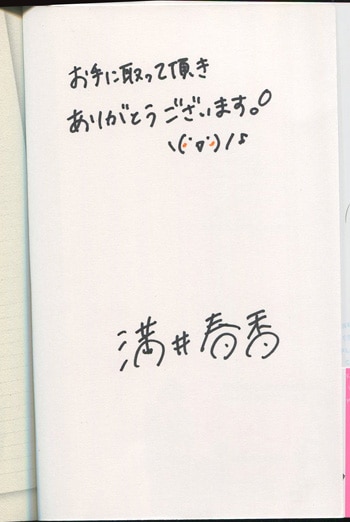 お手に取って頂き
ありがとうございます。
ヽ(˙▽˙)ノ♪
満井春香